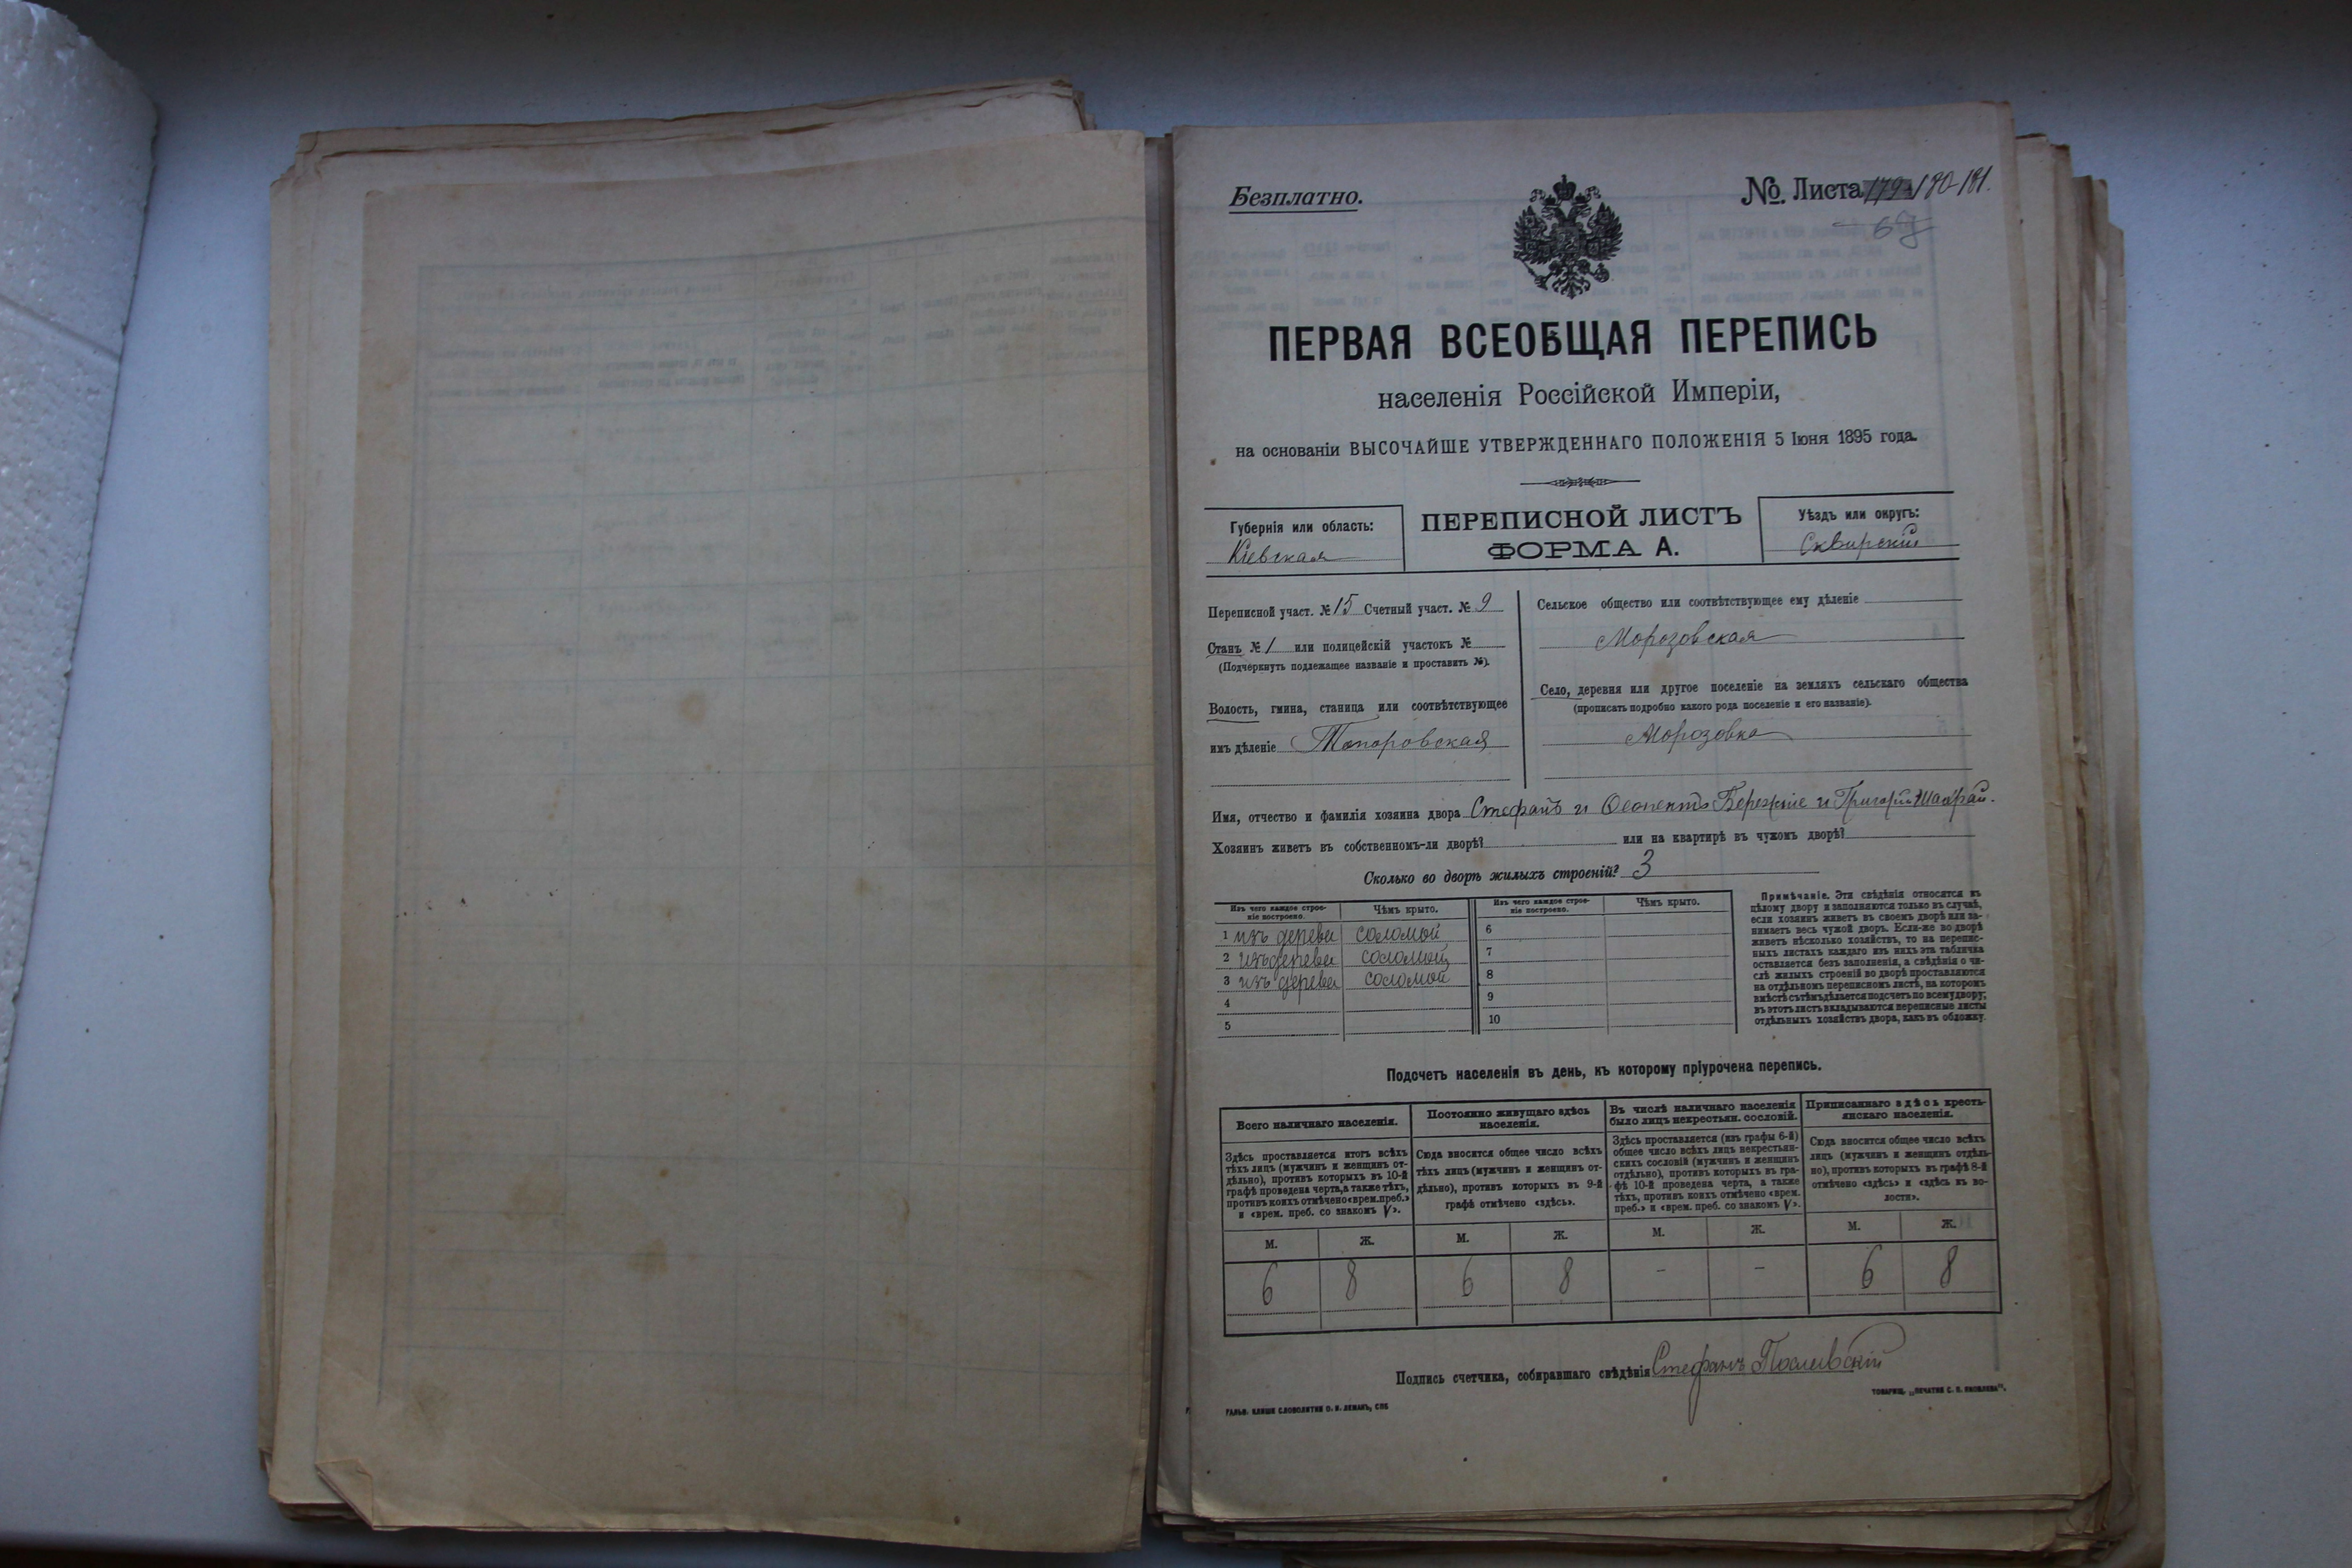 Безплатно.
№ Листа 179-180-181.
ПЕРВАЯ ВСЕОБЩАЯ ПЕРЕПИСЬ
населенія Россійской Имперіи,
на основаніи ВЫСОЧАЙШЕ УТВЕРЖДЕННАГО ПОЛОЖЕНІЯ 5 Іюня 1895 года.
Губернія или область:
Кіевская
ПЕРЕПИСНОЙ ЛИСТЪ
ФОРМА А.
Уѣздъ или округъ:
Сквирскій
Переписной участ. № 15 Счетный участ. № 9
Станъ № 1 или полицейскій участокъ №
(Подчеркнуть подлежащее названіе и проставить №).
Волость, гмина, станица или соотвѣтствующее
имъ дѣленіе Топоровская
Сельское общество или соотвѣтствующее ему дѣленіе
Морозовская
Село, деревня или другое поселеніе на земляхъ сельскаго общества
(прописать подробно какого рода поселеніе и его названіе).
Морозовка
Имя, отчество и фамилія хозяина двора Стефанъ и Бережные и Григорій
Хозяинъ живетъ въ собственномъ-ли дворѣ? или на квартирѣ въ чужомъ дворѣ?
Сколько во дворѣ жилыхъ строеній? 3
Изъ чего каждое строе-
ніе построено.
Чѣмъ крыто.
1 изъ дерева соломой
2 изъ дерева соломой
3 изъ дерева соломой
4
5
Изъ чего каждое строе-
ніе построено.
Чѣмъ крыто.
6
7
8
9
10
Примѣчаніе. Эти свѣдѣнія относятся къ
цѣлому двору и заполняются только въ случаѣ,
если хозяинъ живетъ въ своемъ дворѣ или за-
нимаетъ весь чужой дворъ. Если-же во дворѣ
живетъ нѣсколько хозяйствъ, то на перепис-
ныхъ листахъ каждаго изъ нихъ эта табличка
оставляется безъ заполненія, а свѣдѣнія о чи-
слѣ жилыхъ строеній во дворѣ проставляются
на отдѣльномъ переписномъ листѣ, на которомъ
вмѣстѣ съ тѣмъ дѣлается подсчетъ по всему двору;
въ этотъ листъ вкладываются переписные листы
отдѣльныхъ хозяйствъ двора, какъ въ обложку.
Подсчетъ населенія въ день, къ которому пріурочена перепись.
Всего наличнаго населенія.
Здѣсь проставляется итогъ всѣхъ
тѣхъ лицъ (мужчинъ и женщинъ от-
дѣльно), противъ которыхъ въ 10-й
графѣ проведена черта, а также тѣхъ,
противъ коихъ отмѣчено «врем. преб.»
и «врем. преб. со знакомъ V».
Постоянно живущаго здѣсь
населенія.
Сюда вносится общее число всѣхъ
тѣхъ лицъ (мужчинъ и женщинъ от-
дѣльно), противъ которыхъ въ 9-й
графѣ отмѣчено «здѣсь».
Въ числѣ наличнаго населенія
было лицъ некрестьян. сословій.
Здѣсь проставляется (изъ графы 6-й)
общее число всѣхъ лицъ некрестьян-
скихъ сословій (мужчинъ и женщинъ
отдѣльно), противъ которыхъ въ гра-
фѣ 10-й проведена черта, а также
тѣхъ, противъ коихъ отмѣчено «врем.
преб.» и «врем. преб. со знакомъ V».
Приписаннаго здѣсь кресть-
янскаго населенія.
Сюда вносится общее число всѣхъ
лицъ (мужчинъ и женщинъ отдѣль-
но), противъ которыхъ въ графѣ 8-й
отмѣчено «здѣсь» и «здѣсь къ во-
лости».
М. Ж. М. Ж. М. Ж. М. Ж.
6 8 6 8 - - 6 8
Подпись счетчика, собиравшаго свѣдѣнія Стефанъ
ГАЛЬВ. КЛИШЕ СЛОВОЛИТНИ О. И. ЛЕМАНЪ, СПБ
ТОВАРИЩ. „ПЕЧАТНЯ С. П. ЯКОВЛЕВА".